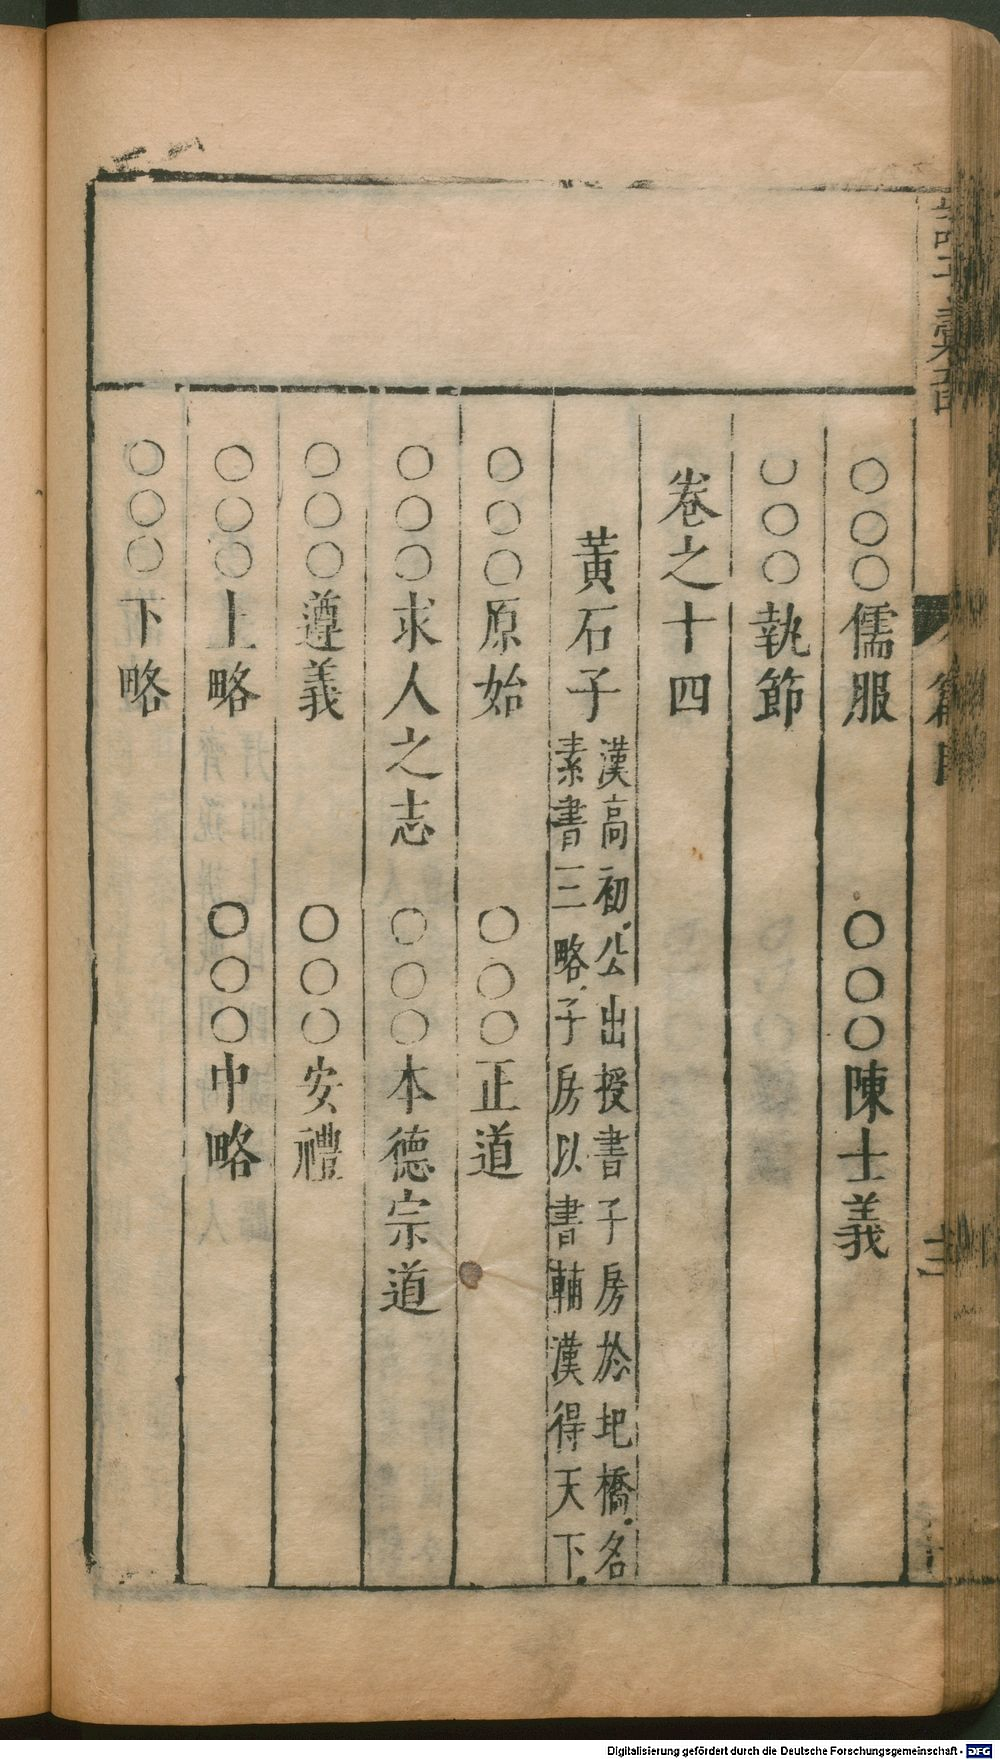 諸子彙函
篇目
○○○儒服　○○○陳士義
○○○執節
卷之十四
黃石子
漢高初公出授書子房於圯橋名
素書三略子房以書輔漢得天下
○○○原始　○○○正道
○○○求人之志　○○○本德宗道
○○○遵義　○○○安禮
○○○上略　○○○中略
○○○下略
Digitalisierung gefördert durch die Deutsche Forschungsgemeinschaft - DFG